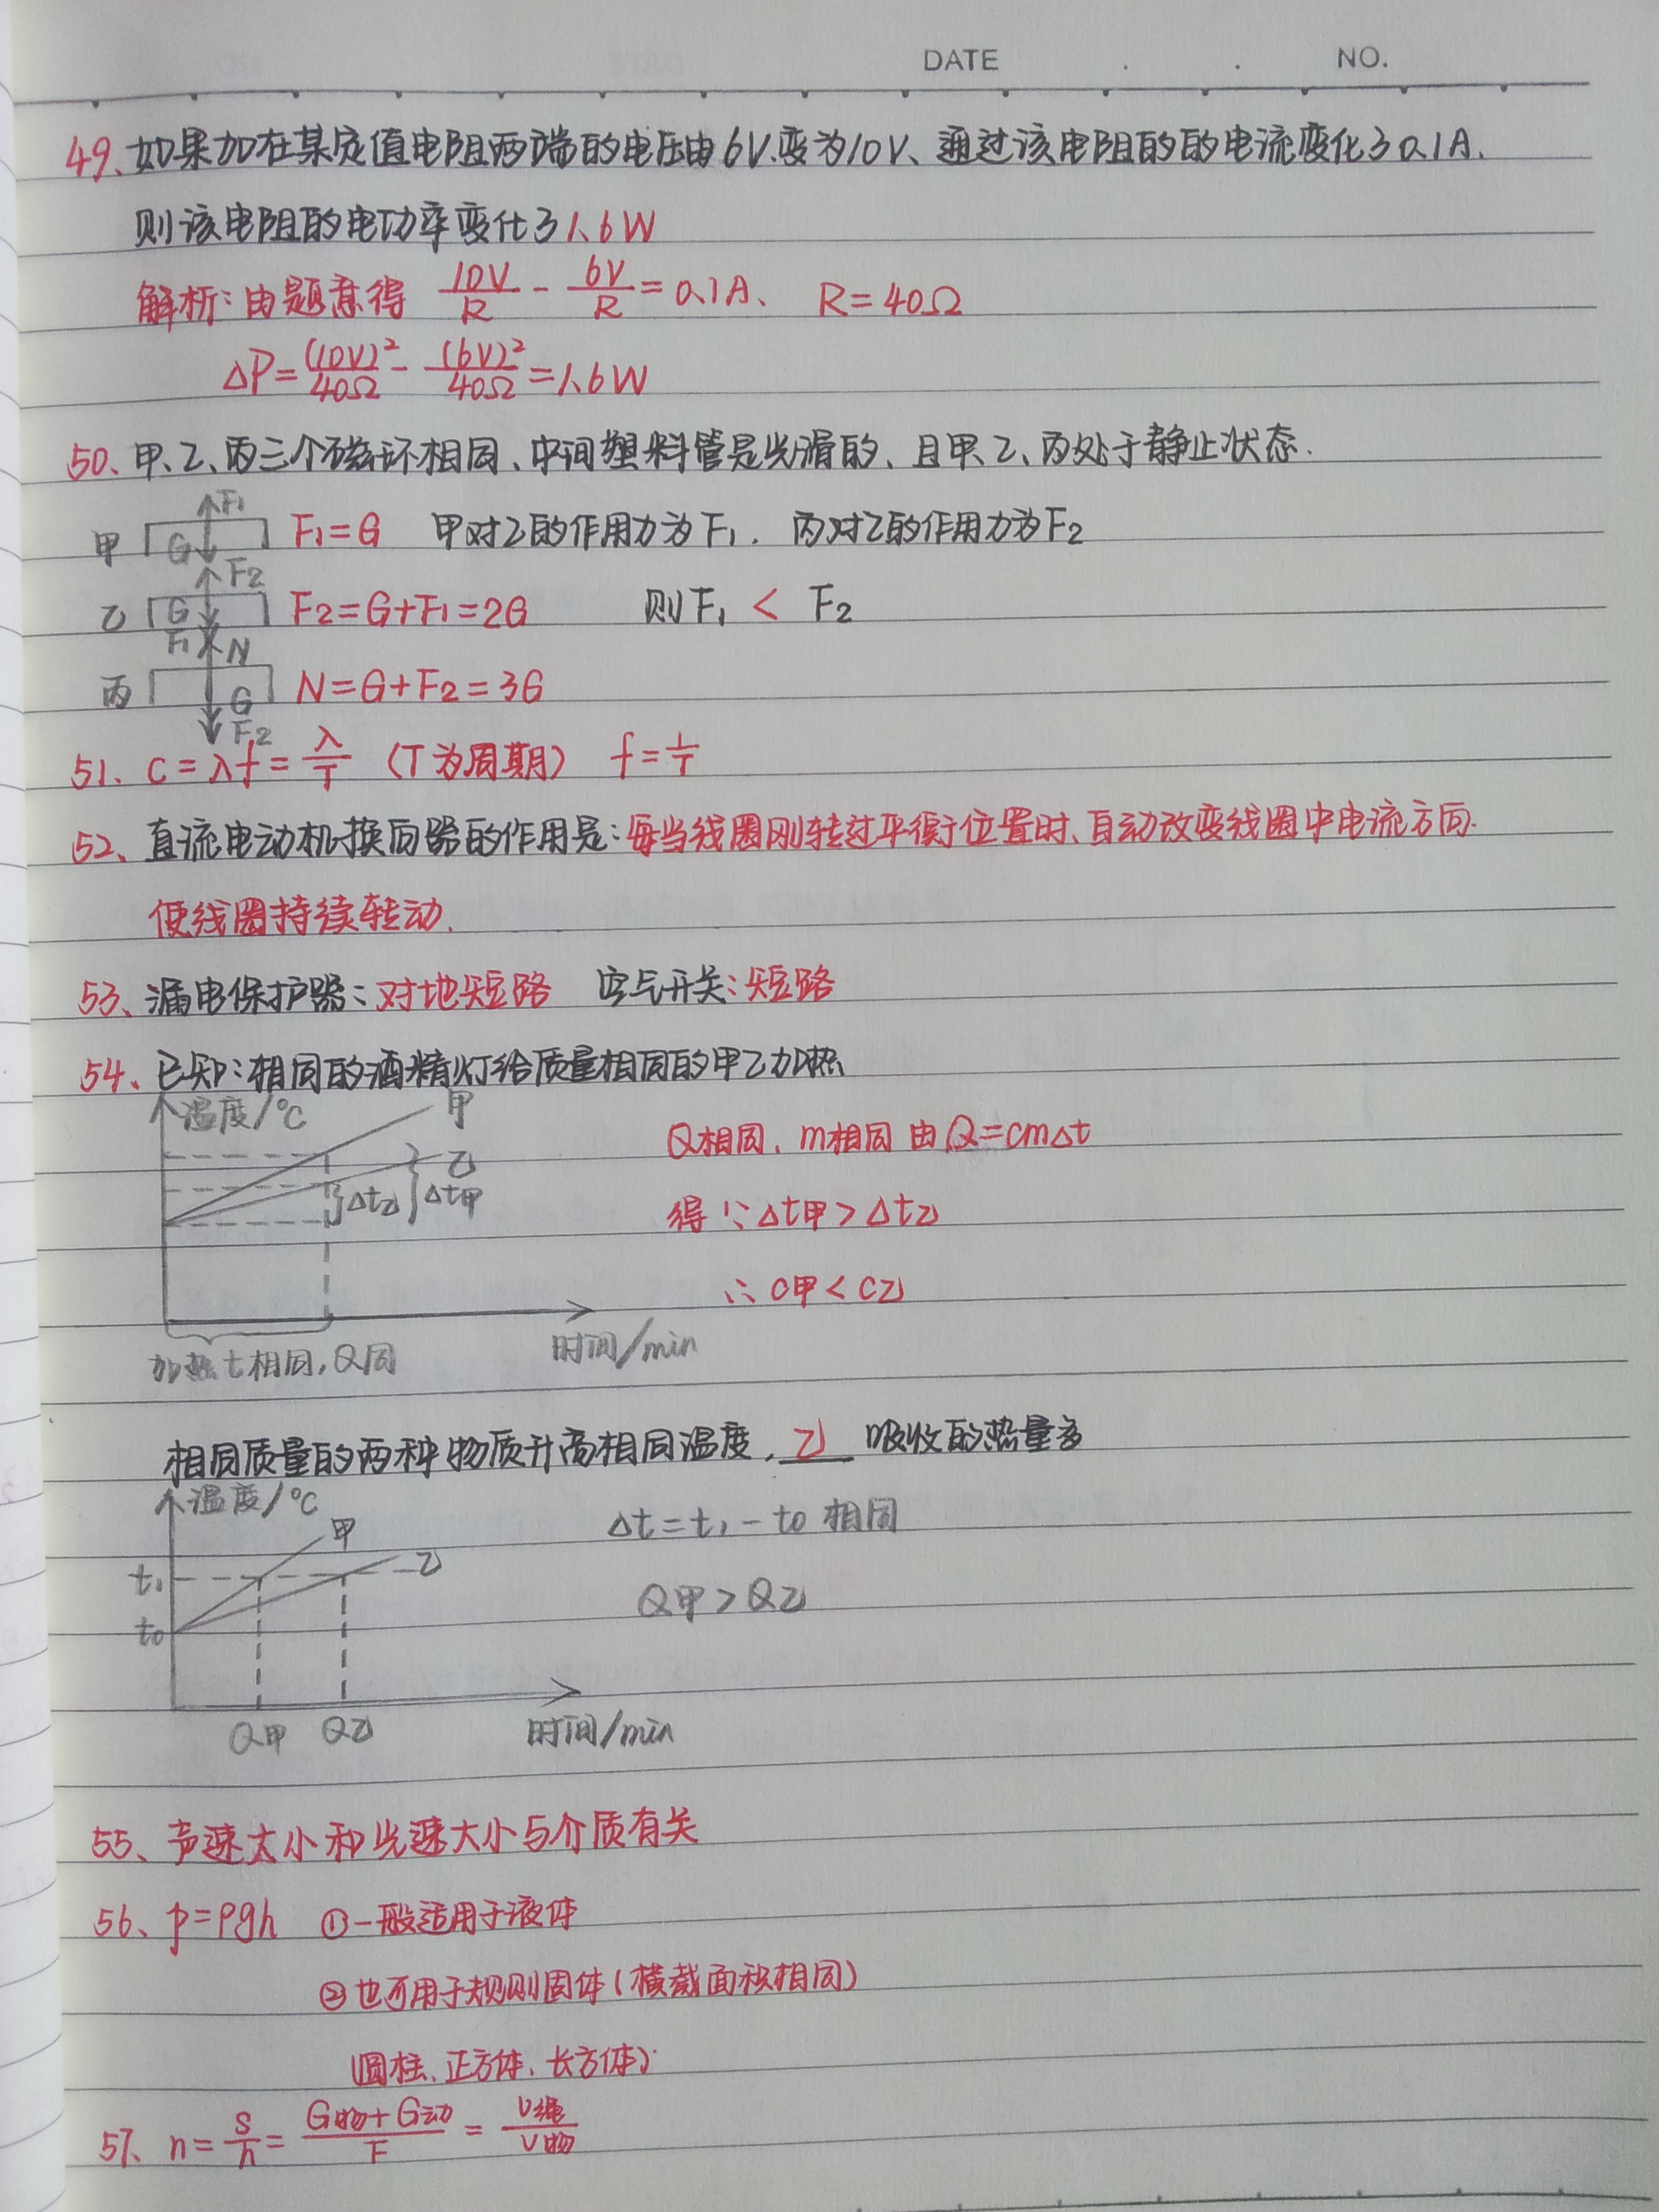 DATE . . NO.
49、如果加在某定值电阻两端的电压由6V.变为10V、通过该电阻的的电流变化了0.1A.
则该电阻的电功率变化了1.6W
解析:由题意得 10V/R - 6V/R = 0.1A、 R=40Ω
ΔP=(10V)²/40Ω - (6V)²/40Ω =1.6W
50、甲、乙、丙三个磁环相同、中间塑料管是光滑的、且甲、乙、丙处于静止状态.
F1
甲 G F1=G 甲对乙的作用力为F1. 丙对乙的作用力为F2
F2
乙 G F2=G+F1=2G 则F1 < F2
F1 N
丙 G N=G+F2=3G
F2
51、c=λf=λ/T (T为周期) f=1/T
52、直流电动机换向器的作用是:每当线圈刚转过平衡位置时、自动改变线圈中电流方向.
使线圈持续转动.
53、漏电保护器:对地短路 空气开关:短路
54、已知:相同的酒精灯给质量相同的甲乙加热
温度/℃ 甲
Q相同、m相同 由Q=cmΔt
乙
Δt乙 Δt甲
得 ∵Δt甲>Δt乙
∴c甲<c乙
时间/min
加热t相同,Q同
相同质量的两种物质升高相同温度,乙 吸收的热量多
温度/℃
甲 Δt=t1-t0 相同
乙
t1
Q甲>Q乙
t0
Q甲 Q乙 时间/min
55、声速大小和光速大小与介质有关
56、p=ρgh ①一般适用于液体
②也可用于规则固体(横截面积相同)
(圆柱、正方体、长方体)
57、n=s/h=(G物+G动)/F=v绳/v物